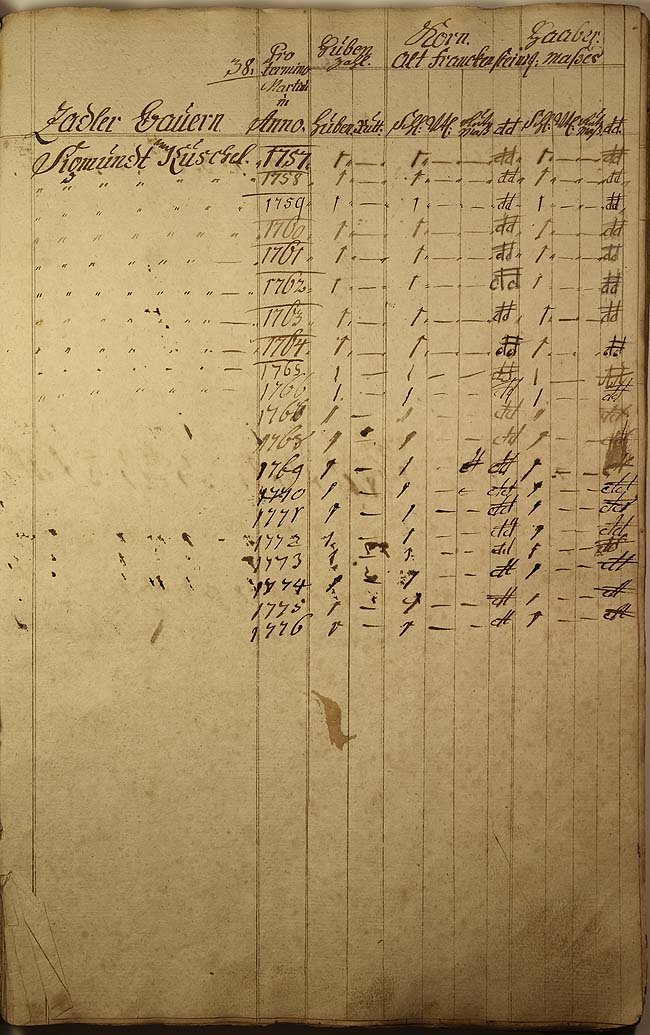 38. Pro Huben Korn. Haaber.
termino Zahl. alt francken steinig. maßes
Martini
in
Zadler Bauern. Anno. Huben. Rutt. Schl. Vtl. dd Schl. Vtl. dd.
Komündt Küschel. 1757. 1 — 1 — — dd 1 — — dd
" " " " " " 1758 1 — 1 — — dd 1 — — dd
" " " " " " 1759 1 — 1 — — dd 1 — — dd
" " " " " " 1760 1 — 1 — — dd 1 — — dd
" " " " " " 1761 1 — 1 — — dd 1 — — dd
" " " " " " 1762 1 — 1 — — dd 1 — — dd
" " " " " " 1763 1 — 1 — — dd 1 — — dd
" " " " " " 1764 1 — 1 — — dd 1 — — dd
" " " " " " 1765 1 — 1 — — dd 1 — — dd
1766 1. — 1 — — dd 1 — — dd
1766 1 — 1 — — dd 1 dd
1768 1 1 — — dd 1 — — dd
1769 1 — 1 — dd 1 — —
1770 1 — 1 — dd 1 — — dd
1771 1 — 1 — — dd 1 — — dd
1772 1 1 — — dd 1 — — dd
1773 1 1 — — dd 1 — — dd
1774 1 1 — — dd 1 — — dd
1775 1 — 1 — — dd 1 — — dd
1776 1 — 1 — — dd 1 — — dd